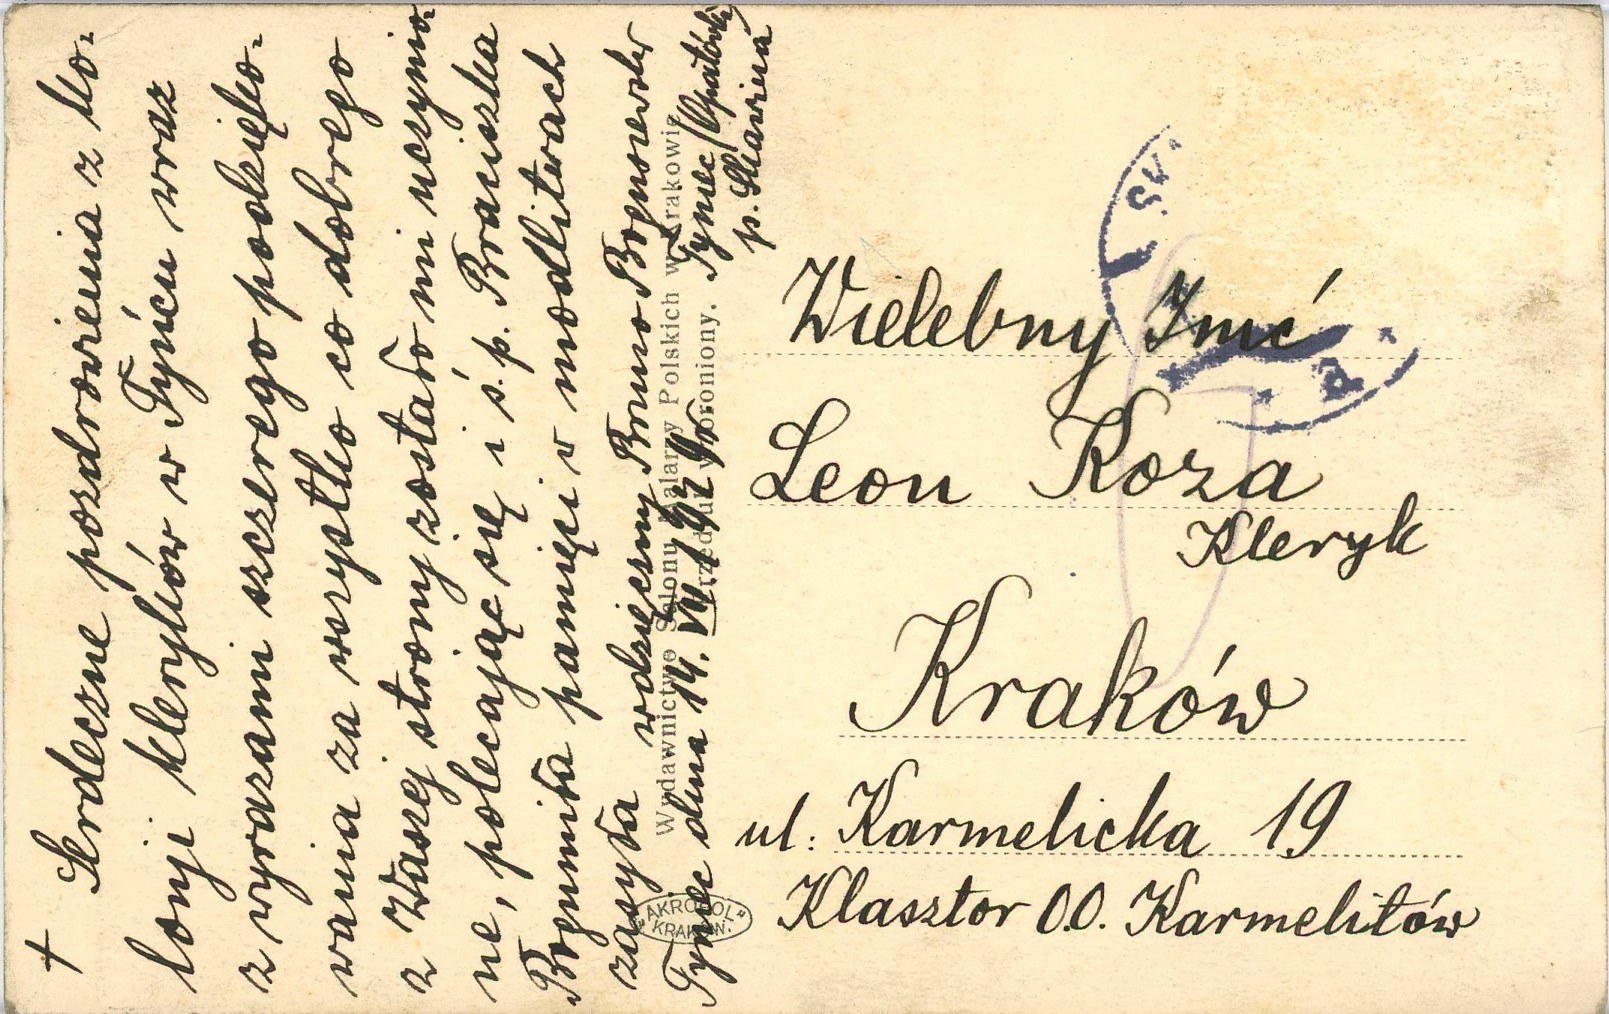 + Serdeczne pozdrowienia z ko-
lonji kleryków w Tyńcu wraz
z wyrazami szczerego podzięko-
wania za wszystko co dobrego
z Waszej strony zostało mi uczynio-
ne, polecając się i ś.p. Braciszka
Bogumiła pamięci w modlitwach
zasyła wdzięczny Bruno
Tyniec dnia 14. VII. 1929r.
Tyniec
p. Skawina
Wydawnictwo Salonu Malarzy Polskich w Krakowie
Przedruk wzbroniony.
"AKROPOL"
KRAKÓW.
Wielebny Imć
Leon Koza
Kleryk
Kraków
ul: Karmelicka 19
Klasztor O.O. Karmelitów